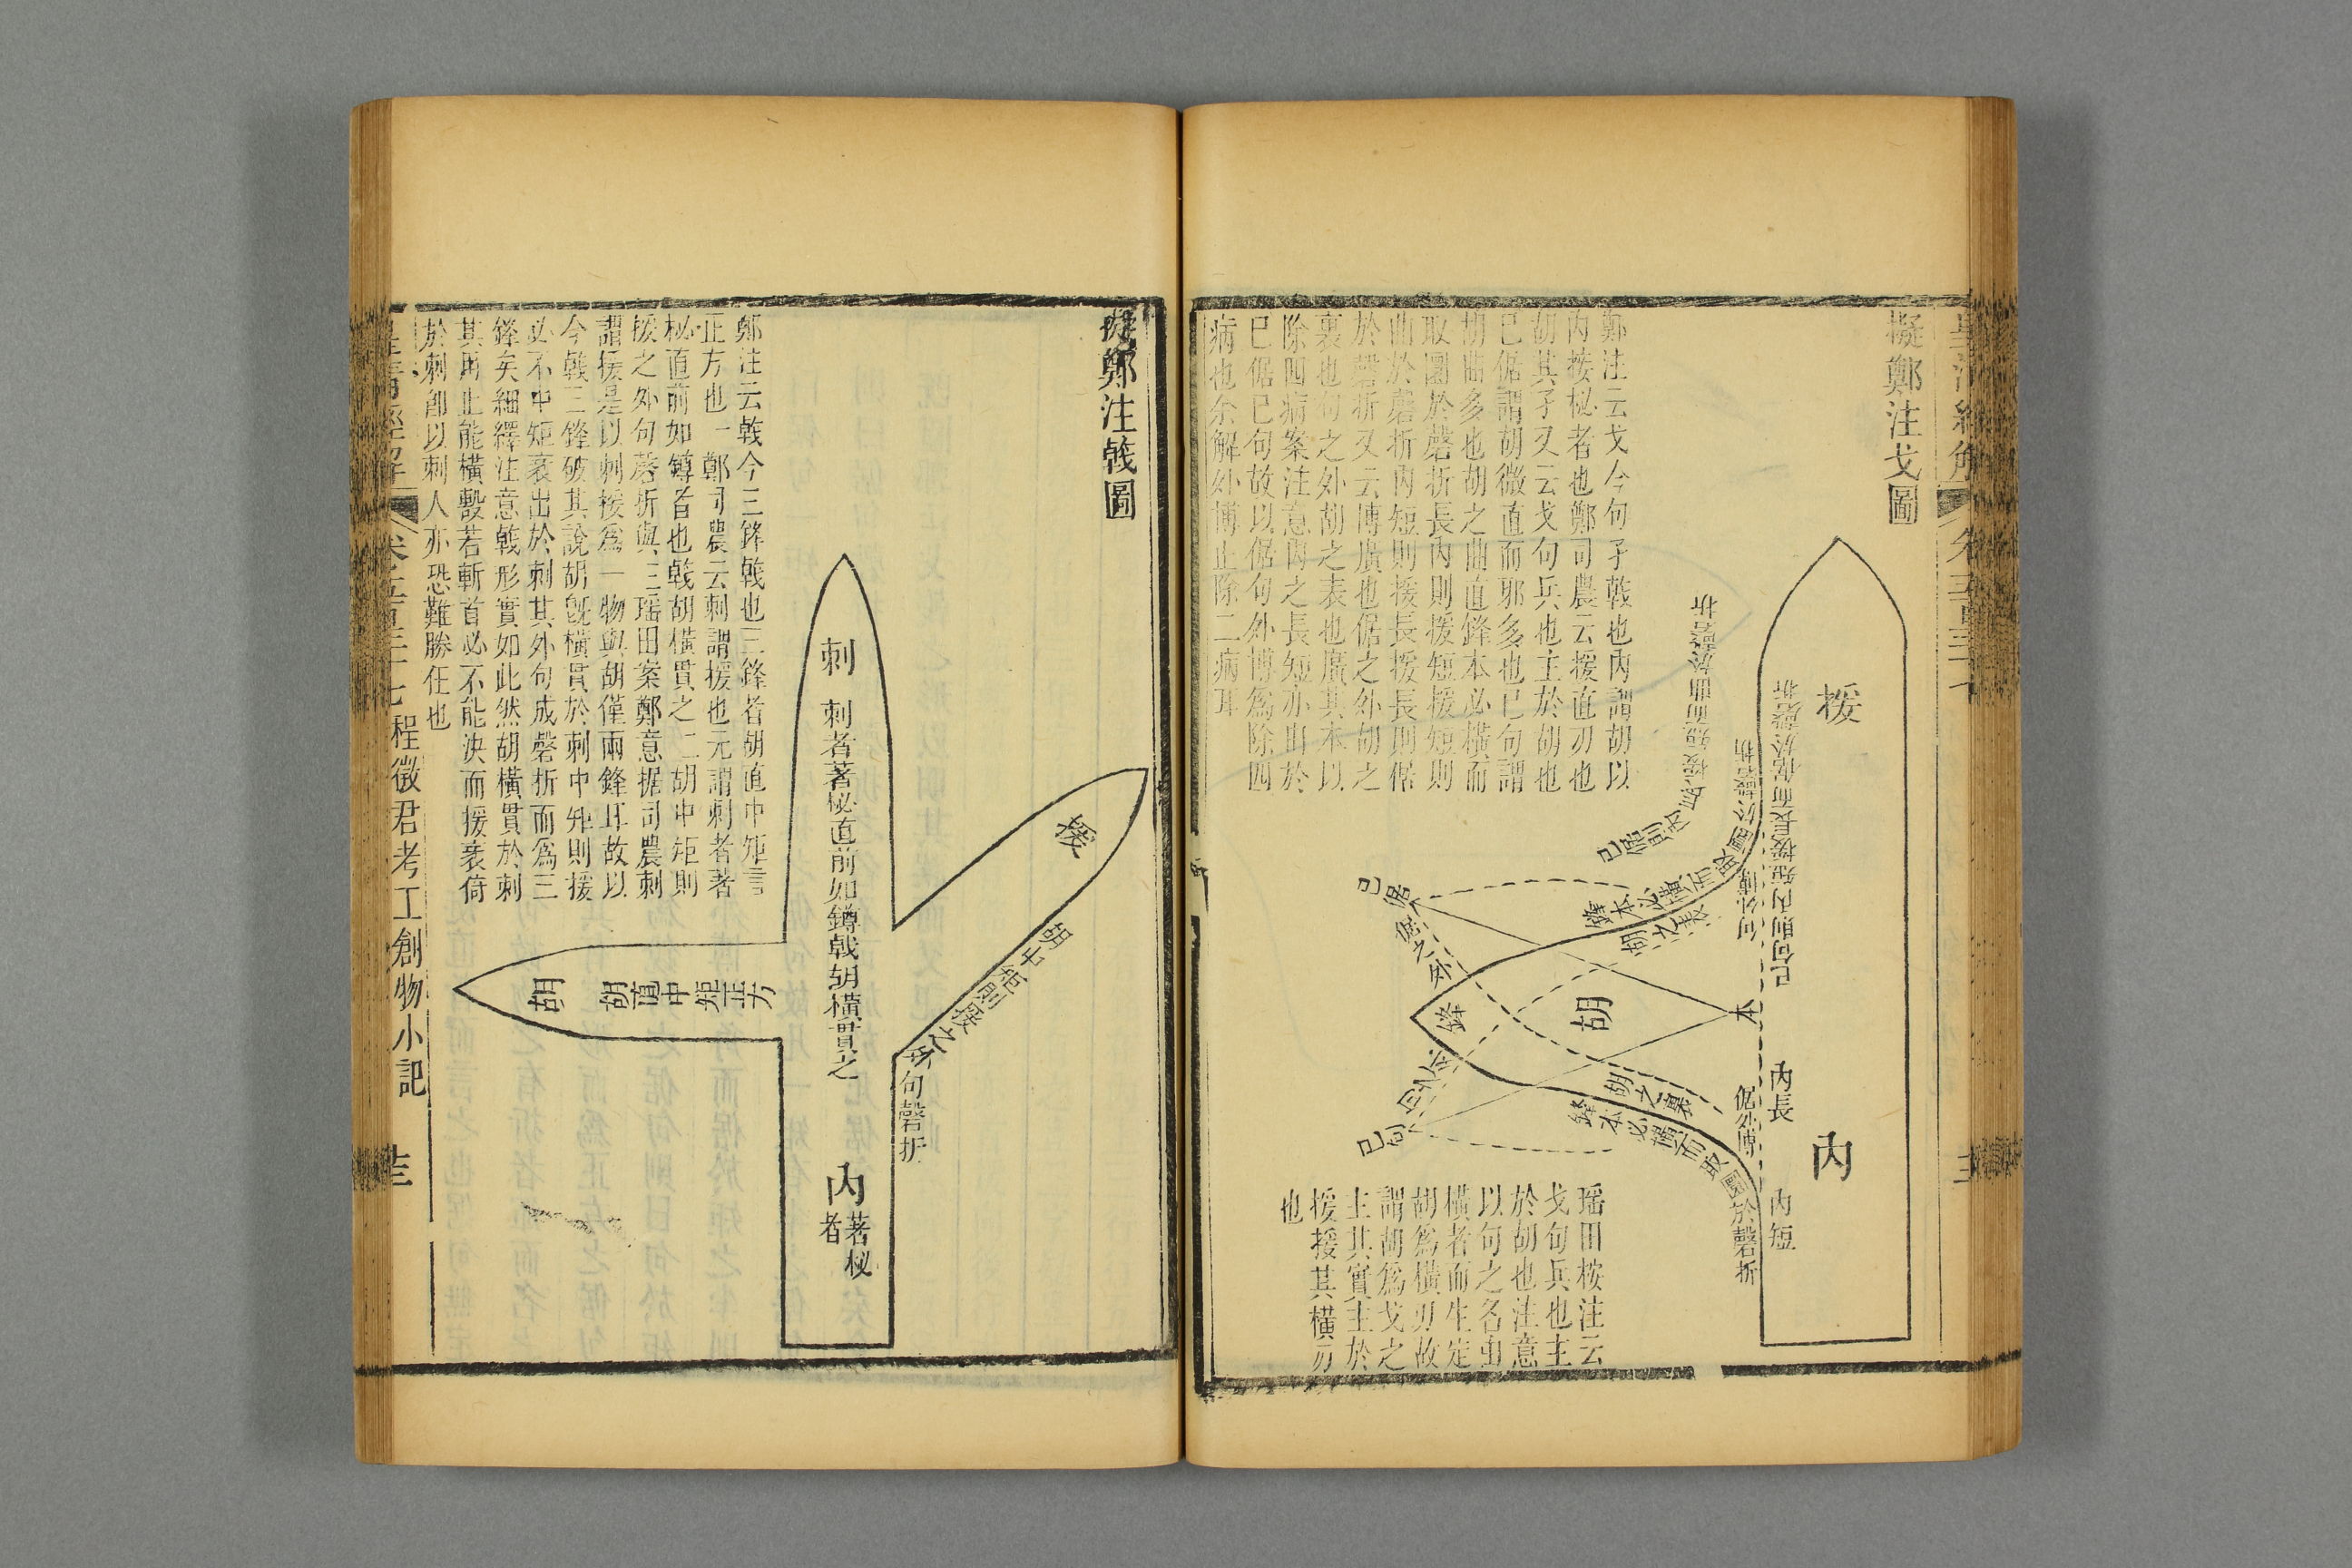 擬鄭注戈圖
援
內
胡
鋒
本
內長
內短
已倨則內長援短而曲於磬折
已句則內短援長而倨於磬折
鋒本必橫而取圜於磬折
胡之表
句外博
已倨
倨之外
句之外
已句
胡之裏
鋒本必橫而取圜於磬折
倨外博
鄭注云戈今句孑戟也內謂胡以
內接柲者也鄭司農云援直刃也
胡其孑又云戈句兵也主於胡也
已倨謂胡微直而邪多也已句謂
胡曲多也胡之曲直鋒本必橫而
取圜於磬折長內則援短援短則
曲於磬折內短則援長援長則倨
於磬折又云博廣也倨之外胡之
裏也句之外胡之表也廣其本以
除四病案注意內之長短亦由於
已倨已句故以倨句外博為除四
病也余解外博止除二病耳
瑶田桉注云
戈句兵也主
於胡也注意
以句之名由
橫者而生定
胡爲橫刃故
謂胡爲戈之
主其實主於
援援其橫刃
也
擬鄭注戟圖
刺
刺者著柲直前如鐏戟胡橫貫之
援
胡中矩則援之外句磬折
胡
胡直中矩正方
內
著柲
者
鄭注云戟今三鋒戟也三鋒者胡直中矩言
正方也一鄭司農云刺謂援也元謂刺者著
柲直前如鐏者也戟胡橫貫之二胡中矩則
援之外句磬折與三瑶田案鄭意据司農刺
謂援是以刺援爲一物與胡僅兩鋒耳故以
今戟三鋒破其說胡旣橫貫於刺中矩則援
必不中矩衺出於刺其外句成磬折而爲三
鋒矣細繹注意戟形實如此然胡橫貫於刺
其用止能橫毄若斬首必不能決而援衺倚
於刺卽以刺人亦恐難勝任也
皇清經解
卷五百三十七
程徵君考工創物小記